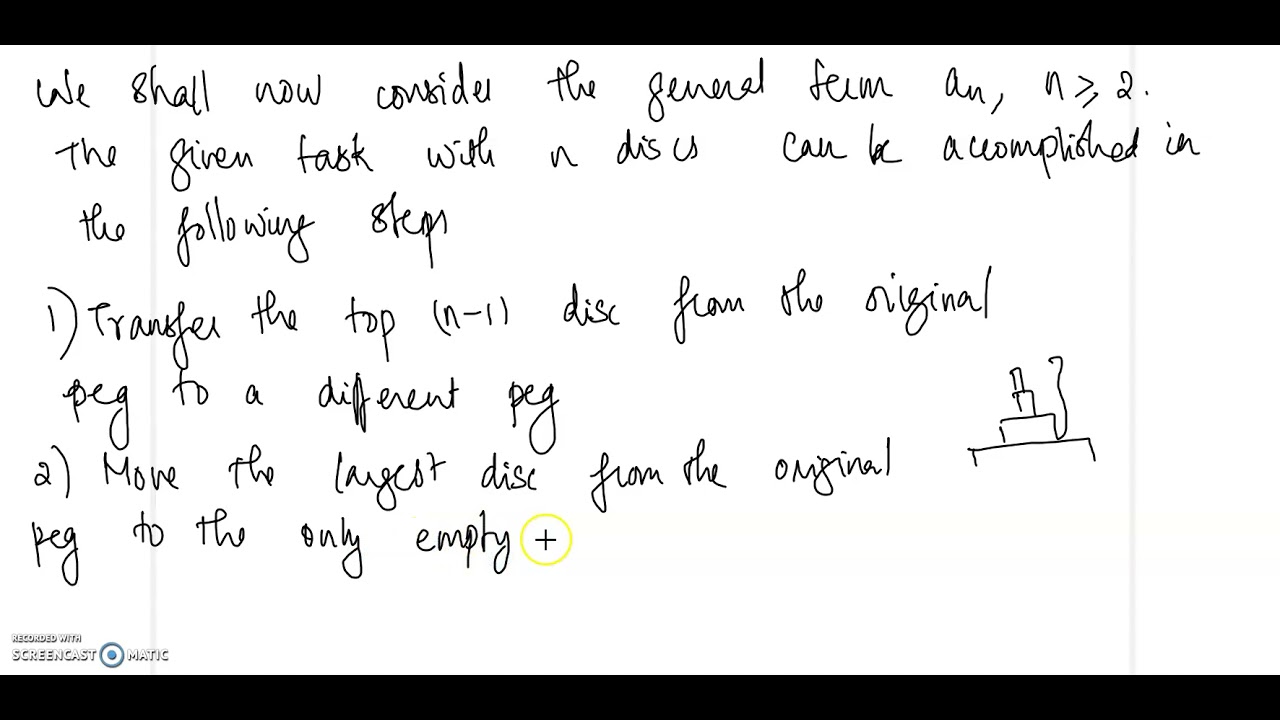 We shall now consider the general term an, n ≥ 2.
The given task with n discs can be accomplished in
the following steps
1) Transfer the top (n-1) disc from the original
peg to a different peg
2) Move the largest disc from the original
peg to the only empty
RECORDED WITH
SCREENCAST MATIC